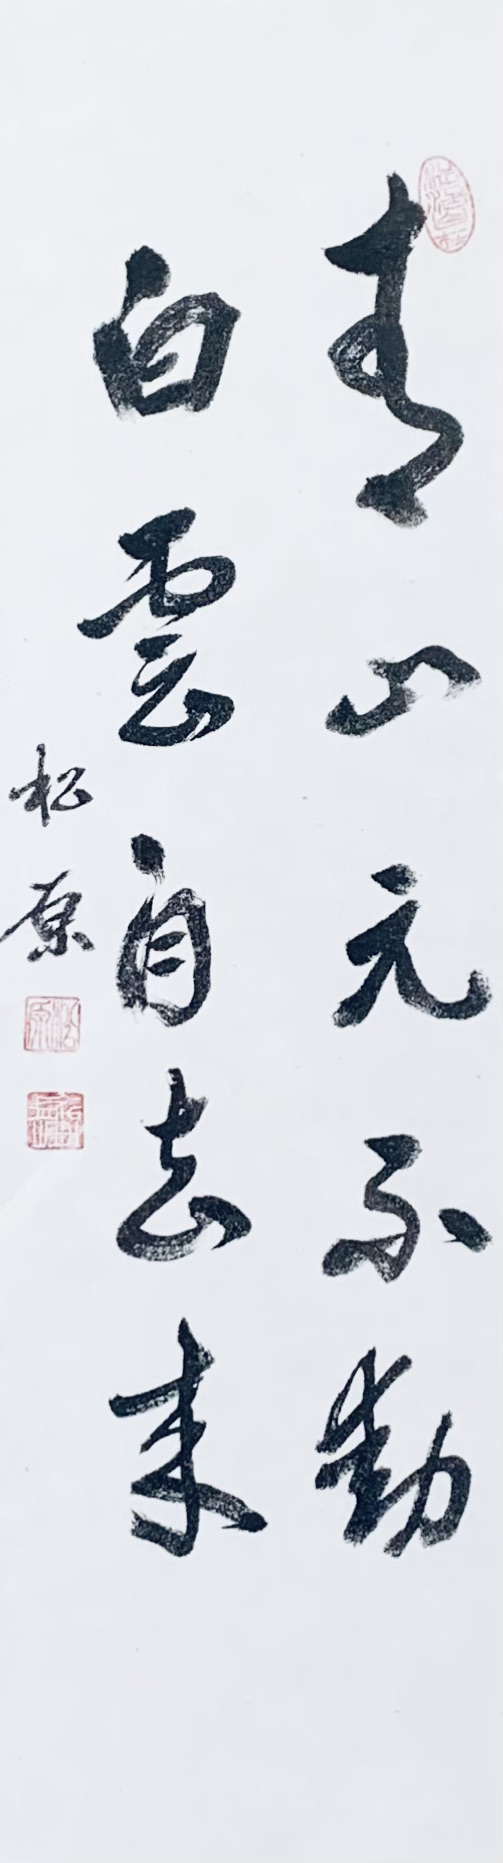 青山元不動
白雲自去来
松原